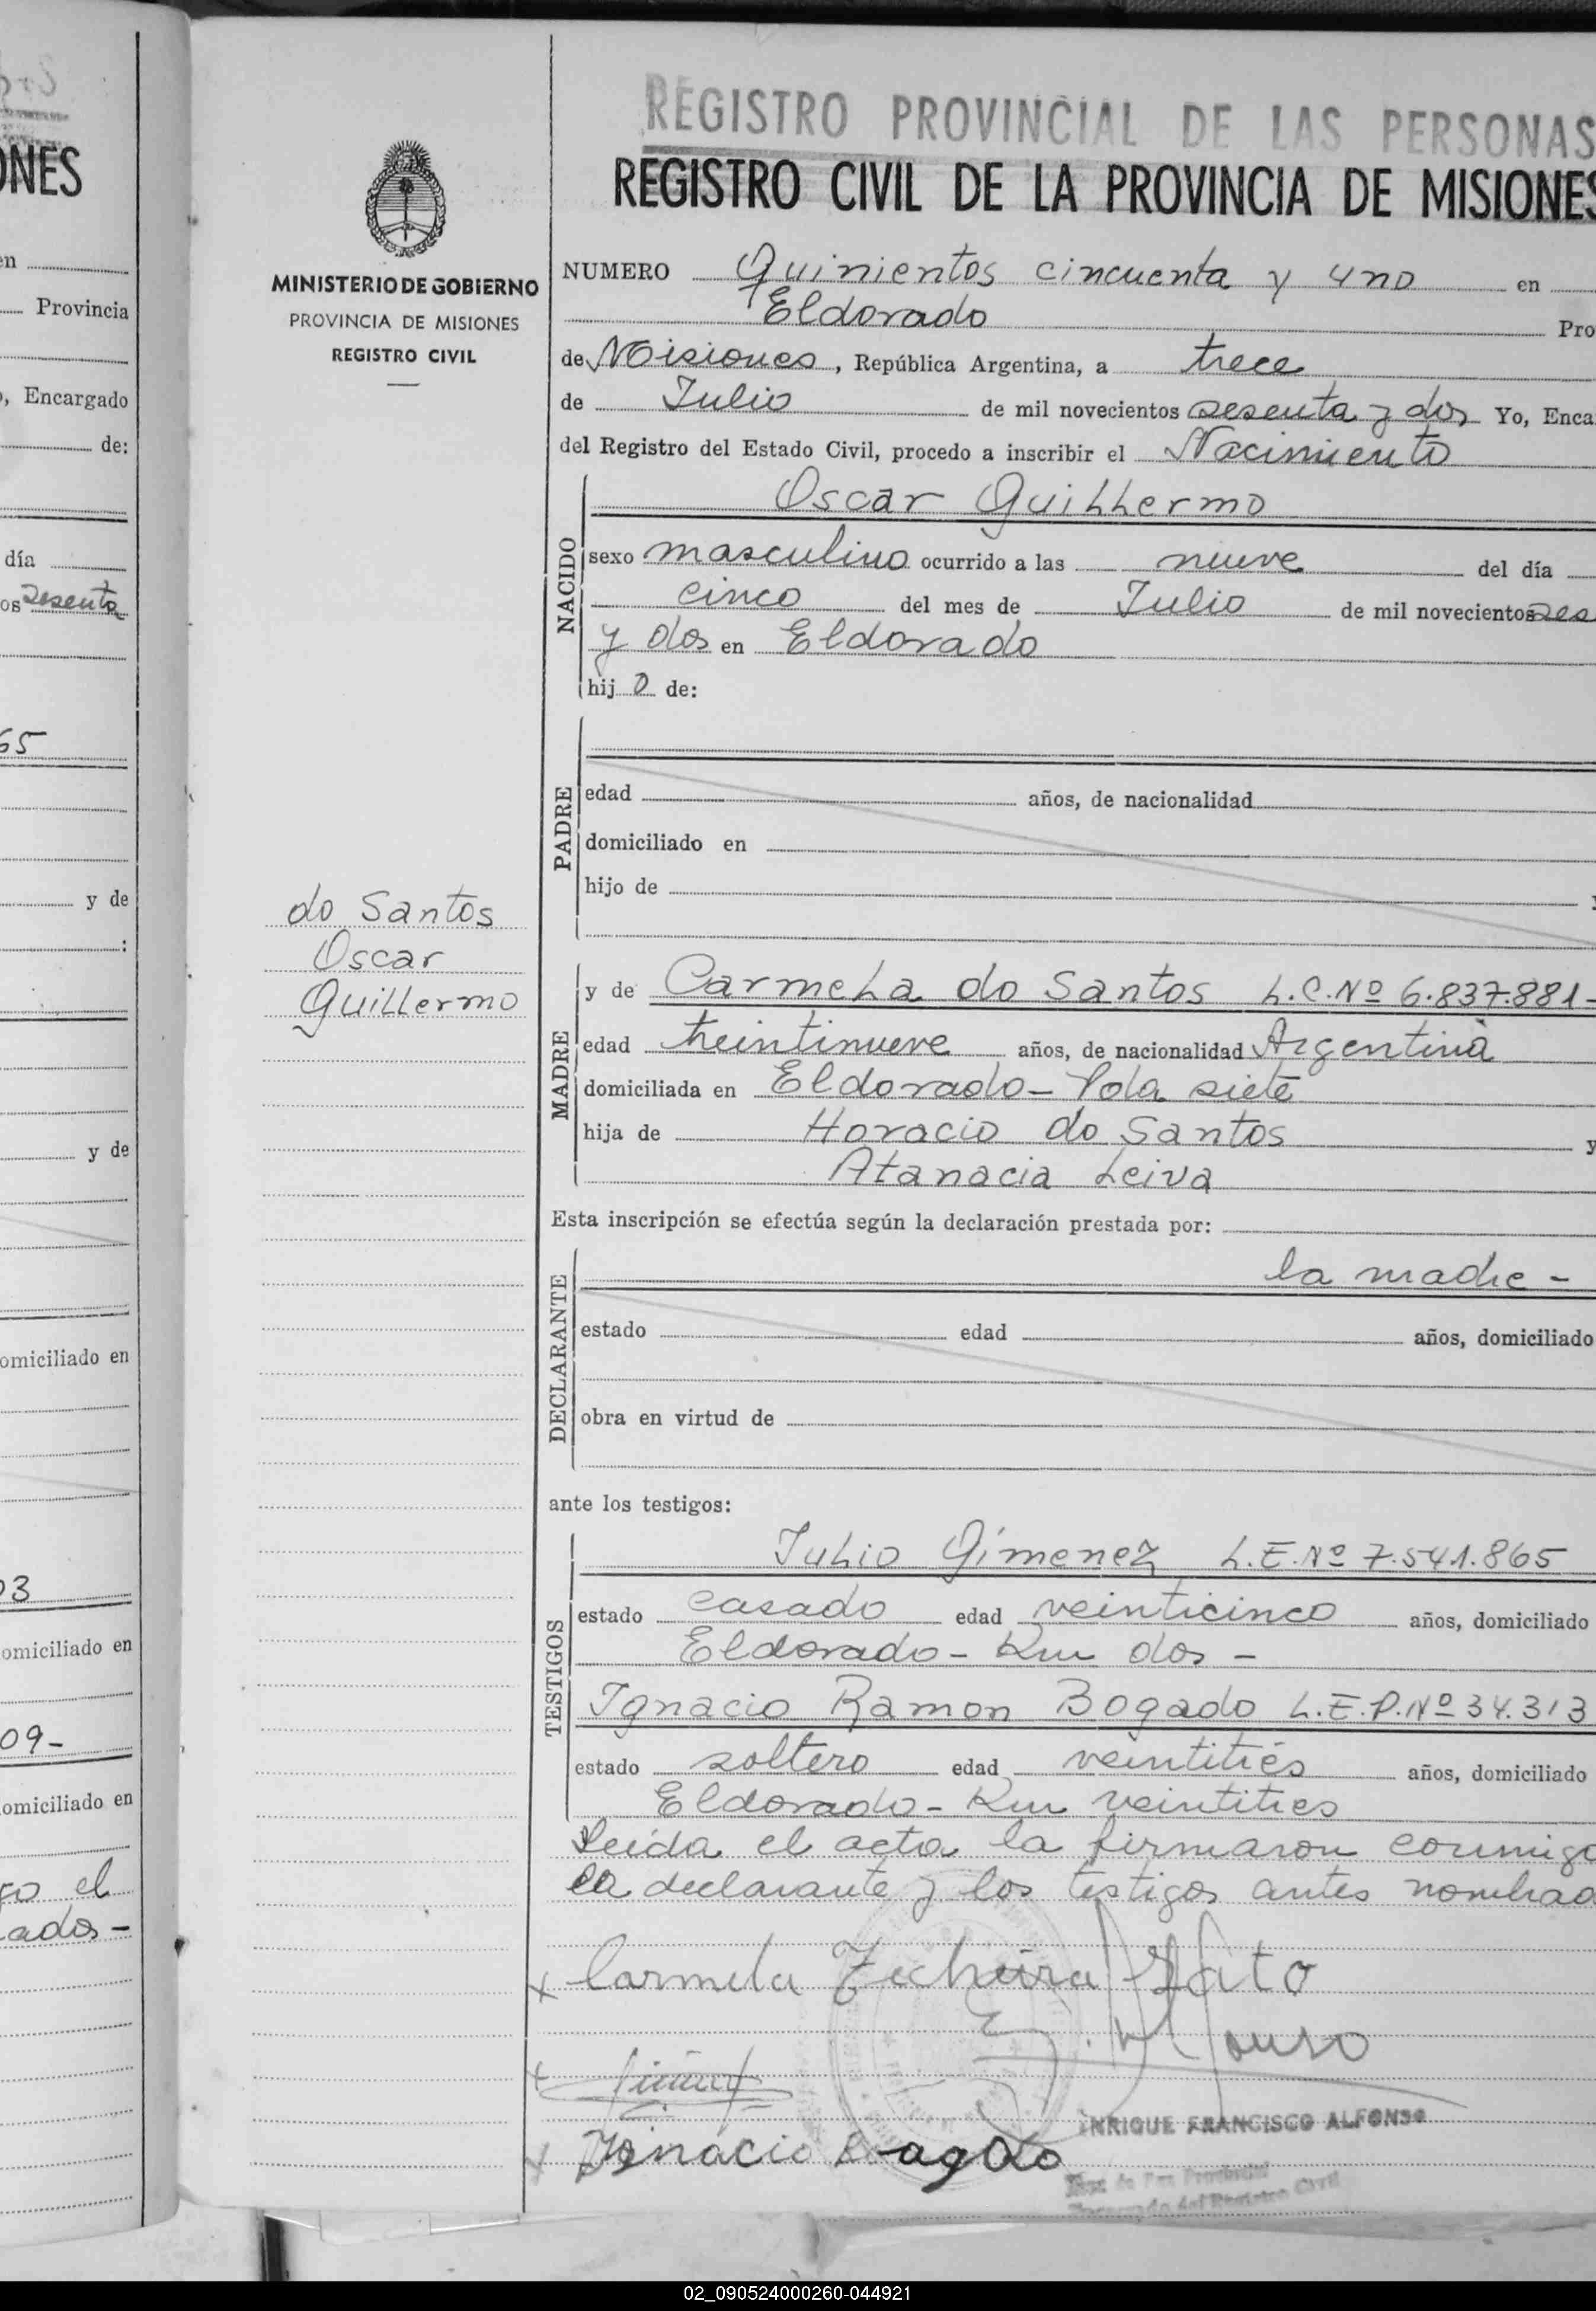 ONES
en
Provincia
, Encargado
de:
día
os sesenta
65
y de
:
y de
omiciliado en
03
omiciliado en
09-
omiciliado en
el
ados-
MINISTERIO DE GOBIERNO
PROVINCIA DE MISIONES
REGISTRO CIVIL
do Santos
Oscar
Guillermo
REGISTRO PROVINCIAL DE LAS PERSONAS
REGISTRO CIVIL DE LA PROVINCIA DE MISIONES
NUMERO Quinientos cincuenta y uno en
Eldorado Pro
de Misiones, República Argentina, a trece
de Julio de mil novecientos sesenta y dos Yo, Enca
del Registro del Estado Civil, procedo a inscribir el Nacimiento
NACIDO
Oscar Guillermo
sexo masculino ocurrido a las nueve del día
cinco del mes de Julio de mil novecientos ses
y dos en Eldorado
hijo de:
PADRE
edad años, de nacionalidad
domiciliado en
hijo de
MADRE
y de Carmela do Santos L.C.Nº 6.837.881-
edad treintinueve años, de nacionalidad Argentina
domiciliada en Eldorado- siete
hija de Horacio do Santos y
Atanacia Leiva
Esta inscripción se efectúa según la declaración prestada por:
DECLARANTE
la madre -
estado edad años, domiciliado
obra en virtud de
ante los testigos:
TESTIGOS
Julio Gimenez L.E.Nº 7.541.865
estado casado edad veinticinco años, domiciliado
Eldorado - Km dos -
Ignacio Ramon Bogado L.E.P.Nº 34.313
estado soltero edad veintitrés años, domiciliado
Eldorado - Km veintitres
Leída el acta la firmaron conmigo
la declarante y los testigos antes nombrad
x Carmela
x
ENRIQUE FRANCISCO ALFONSO
x Ignacio
Juez de Paz Provincial
Encargado del Registro Civil
02_090524000260-044921